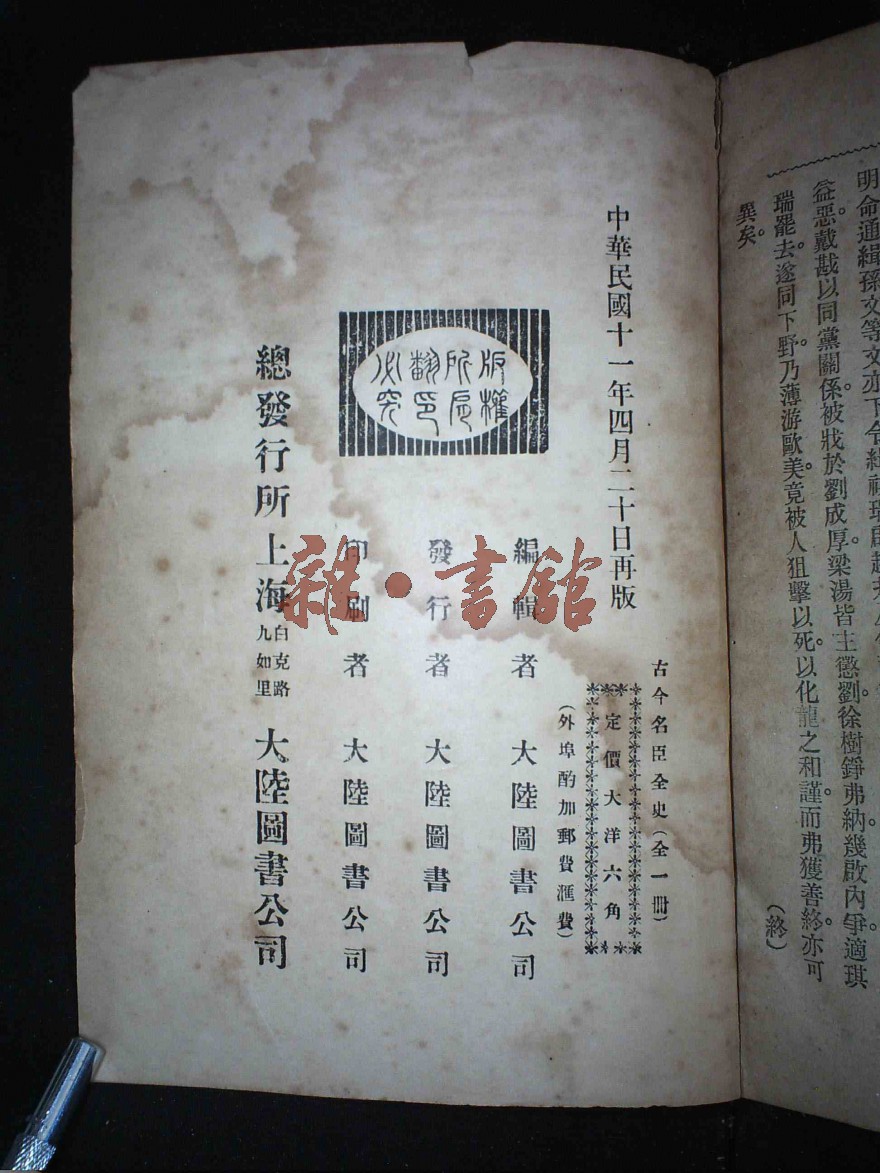 明命通緝孫文等文亦下令緝
益惡戴戡以同黨關係。被戕於劉成厚。梁湯皆主懲劉。徐樹錚弗納。幾啟內爭。適琪
瑞罷去。遂同下野。乃薄游歐美。竟被人狙擊以死。以化龍之和謹。而弗獲善終。亦可
異矣。
(終)
中華民國十一年四月二十日再版
古今名臣全史(全一冊)
定價大洋六角
(外埠酌加郵費滙費)
版權
所有
翻印
必究
編輯者 大陸圖書公司
發行者 大陸圖書公司
印刷者 大陸圖書公司
總發行所 上海 白克路 九如里 大陸圖書公司
雜·書館